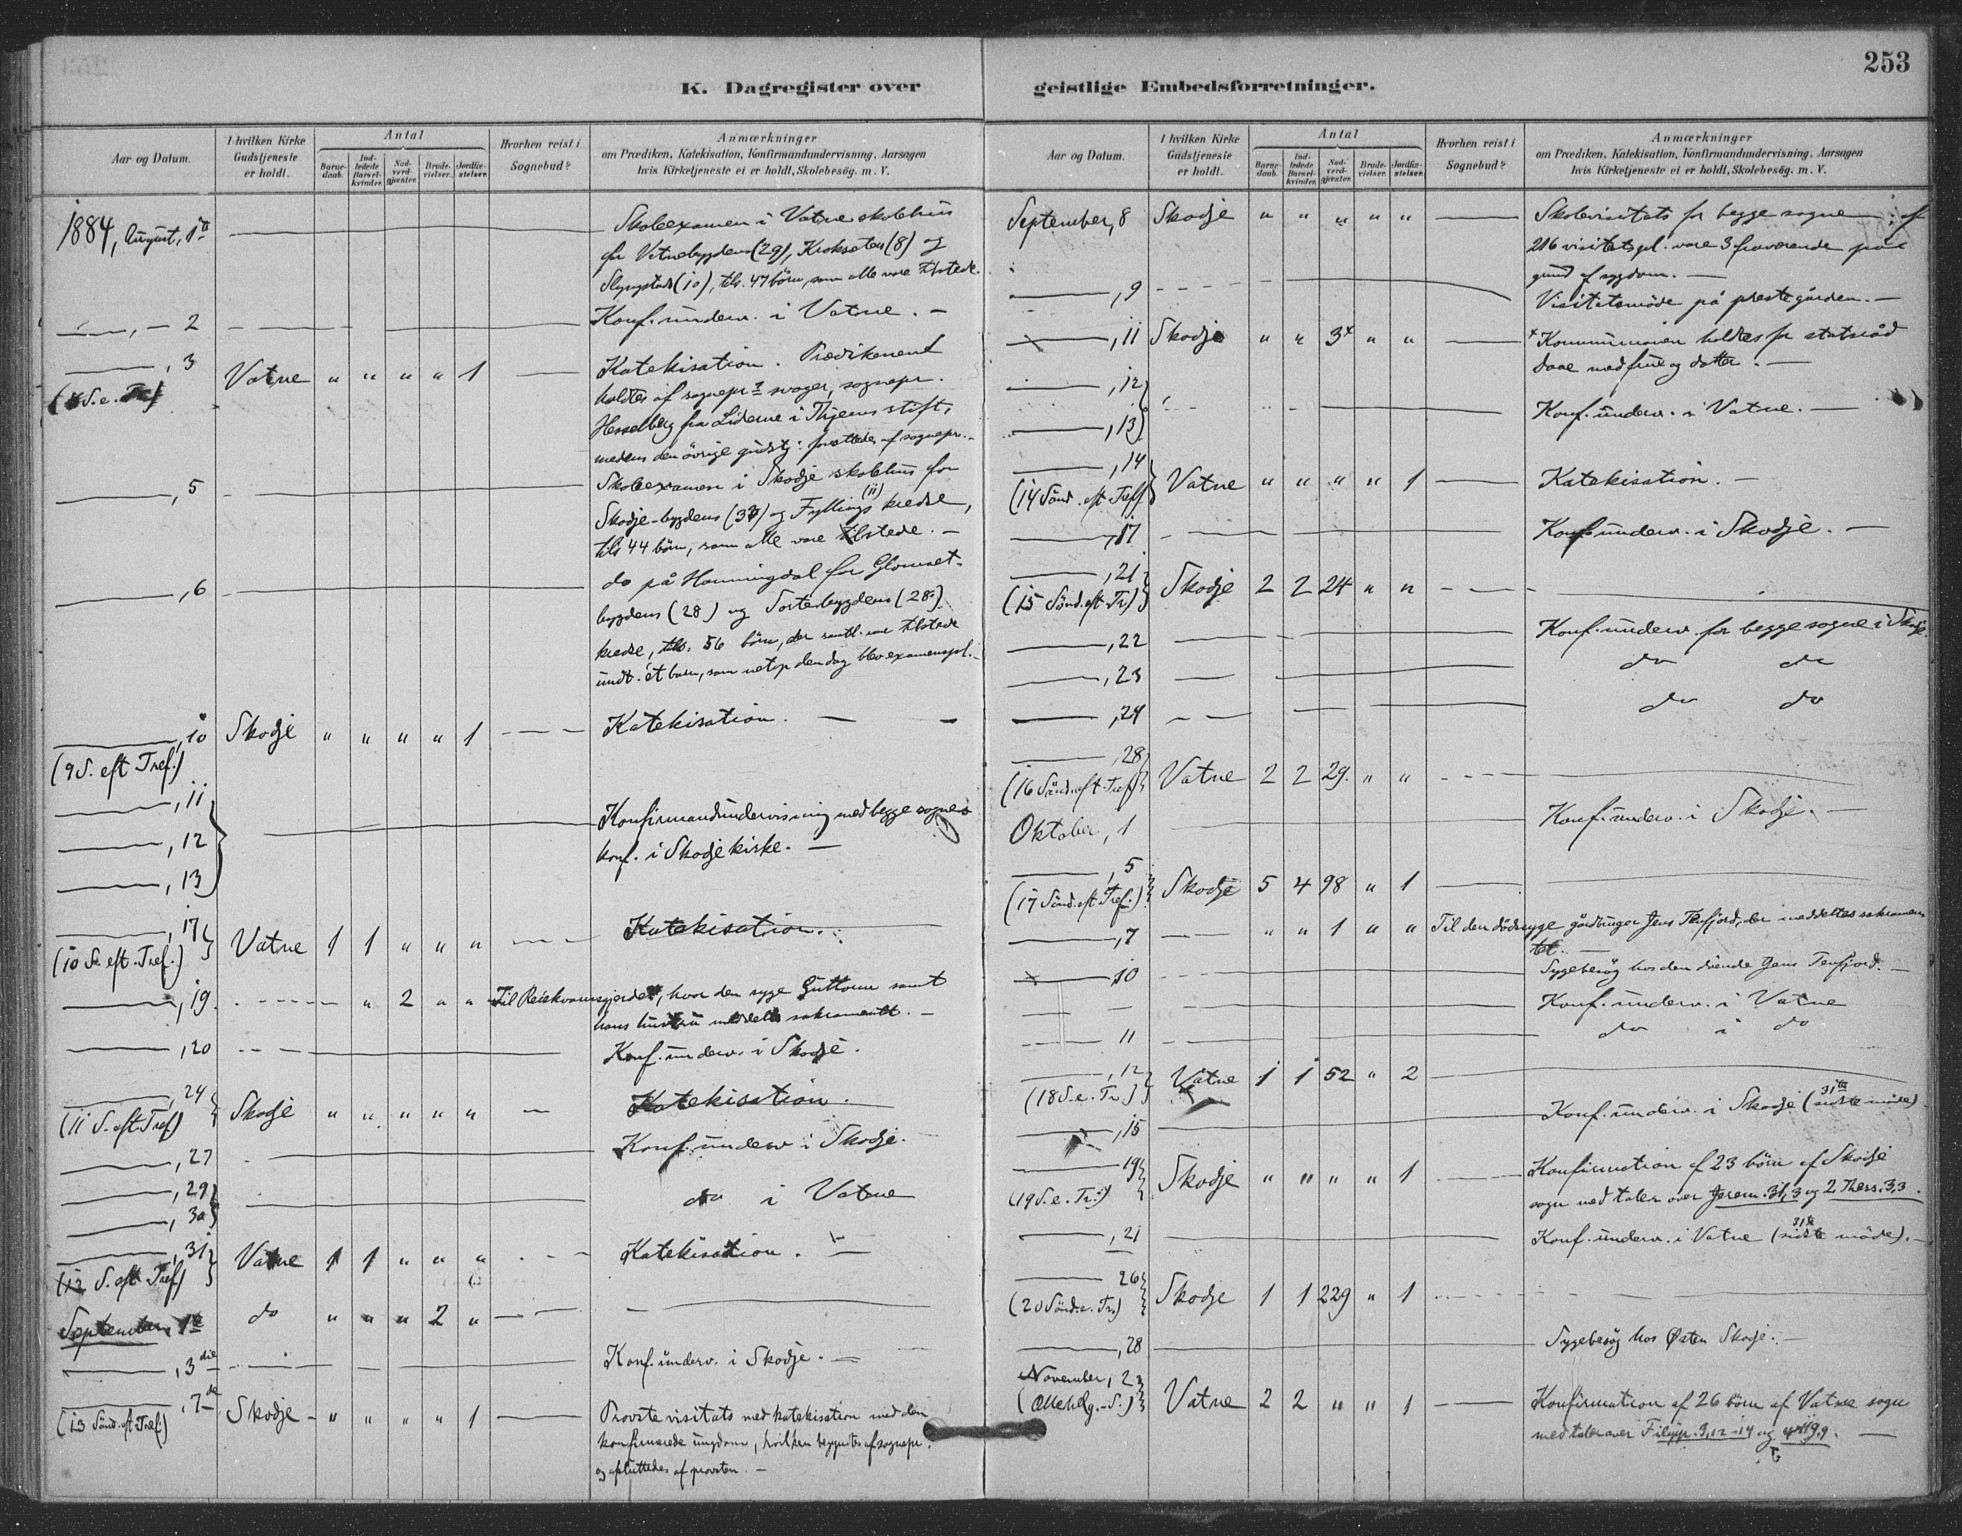 253
K. Dagregister over geistlige Embedsforretninger.
Aar og Datum.
I hvilken Kirke Gudstjeneste er holdt.
Antal
Barnedaab.
Indledede Barselkvinder.
Nadverdgjæster.
Brudevielser.
Jordfæstelser.
Hvorhen reist i Sognebud?
Anmærkninger
om Prædiken, Katekisation, Konfirmandundervisning, Aarsagen
hvis Kirketjeneste ei er holdt, Skolebesøg. m. V.
1884, August, 1ste Skoleexamen i Vatne skolehus
for Vatnebygdens (29), Kroksæter (8) og
Slyngstads (10), tils. 47 børn, som alle vare tilstede.
—, — 2 Konf. underv. i Vatne. —
—, 3 Vatne " " " " 1 — Katekisation. Prædikenen
(8 S. e. Tr.) holdtes af sognepr.s svager, sognepr.
Hesselberg fra Lierne i Thjems stift,
medens den øvrige gudstj. forrettedes af sognepr. —
—, 5 Skoleexamen i Skodje skolehus for
Skodje-bygdens (33) og Fyllings (11) kredse,
tils 44 børn, som alle vare tilstede. —
—, 6 do på Honningdal for Glomset-
bygdens (28) og Sortebygdens (28)
kredse, tils. 56 børn, der samtl. vare tilstede
undt. ét barn, som netop den dag blev examenspl. —
—, 10 Skodje " " " " 1 — Katekisation. — —
(9 S. eft Tref.)
—, 11
—, 12 Konfirmandundervisning med begge sognes
—, 13 konf. i Skodje kirke. —
—, 17 Vatne 1 1 " " " — Katekisation.
(10 S. eft. Tref.)
—, 19 " 2 " " Til Reiakvamsgjerdet, hvor den syge Guttorm samt
hans hustru meddeltes sakramentet. —
—, 20 Konf. underv. i Skodje.
—, 24 Skodje " " " " " — Katekisation.
(11 S. eft. Tref)
—, 27 Konf. underv i Skodje.
—, 29
—, 30 do i Vatne
—, 31 Vatne 1 1 " " " — Katekisation. —
(12 S. eft Tref)
September, 1ste do " " " 2 " —
—, 3die Konf. underv. i Skodje. —
—, 7de Skodje " " " " 1 — Provstevisitats med katekisation med den
(13 Sønd. eft. Tref) konfirmerede ungdom, hvilken begyndtes af sognepr.
og afsluttedes af provsten. —
Aar og Datum.
I hvilken Kirke Gudstjeneste er holdt.
Antal
Barnedaab.
Indledede Barselkvinder.
Nadverdgjæster.
Brudevielser.
Jordfæstelser.
Hvorhen reist i Sognebud?
Anmærkninger
om Prædiken, Katekisation, Konfirmandundervisning, Aarsagen
hvis Kirketjeneste ei er holdt, Skolebesøg. m. V.
September, 8 Skodje " " " " " — Skolevisitats for begge sogne; af
216 visitatspl. vare 3 fraværende paa
grund af sygdom. —
—, 9 Visitatsmøde på præstegården. —
—, 11 Skodje " " 3x " " — x Kommunionen holdtes for statsråd
Daae med frue og datter. —
—, 12
—, 13 Konf. underv. i Vatne. —
—, 14 Vatne " " " " 1 — Katekisation. —
(14 Sønd. eft. Tref)
—, 17 Konf. underv. i Skodje. —
—, 21 Skodje 2 2 24 " " —
(15 Sønd. eft. Tr)
—, 22 Konf. underv. for begge sogne i Skodje.
—, 23 do do
—, 24 do do
—, 28 Vatne 2 2 29. " " —
(16 Sønd. eft. Tref)
Oktober, 1 Konf. underv. i Skodje. —
—, 5 Skodje 5 4 98 " 1 —
(17 Sønd. eft. Tref.)
—, 7 " " 1 " " Til den dødssyge gårdbruger Jens Tenfjord, der meddeltes sakramen-
tet. —
— 10 Sygebesøg hos den døende Jens Tenfjord. —
— — Konf. underv. i Vatne
— 11 do i do
—, 12 Vatne 1 1 52 " 2 —
(18 S. e. Tr.)
—, 15 Konf. underv. i Skodje (31te sidste møde)
— 19 Skodje " " " " 1 — Konfirmation af 23 børn af Skodje
(19 S. e. Tr.) sogn med taler over Jerem. 31,3 og 2 Thess. 3,3.
—, 21 Konf. underv. i Vatne (31te sidste møde). —
— 26 Skodje 1 1 229 " 1
(20 Sønd. e. Tr.)
—, 28 Sygebesøg hos Østen Skodje. —
November, 2 Vatne 2 2 " " 1 — Konfirmation af 26 børn af Vatne sogn
(Allehlg.-S.) med taler over Filipp. 3,12-14 og 119,9 —